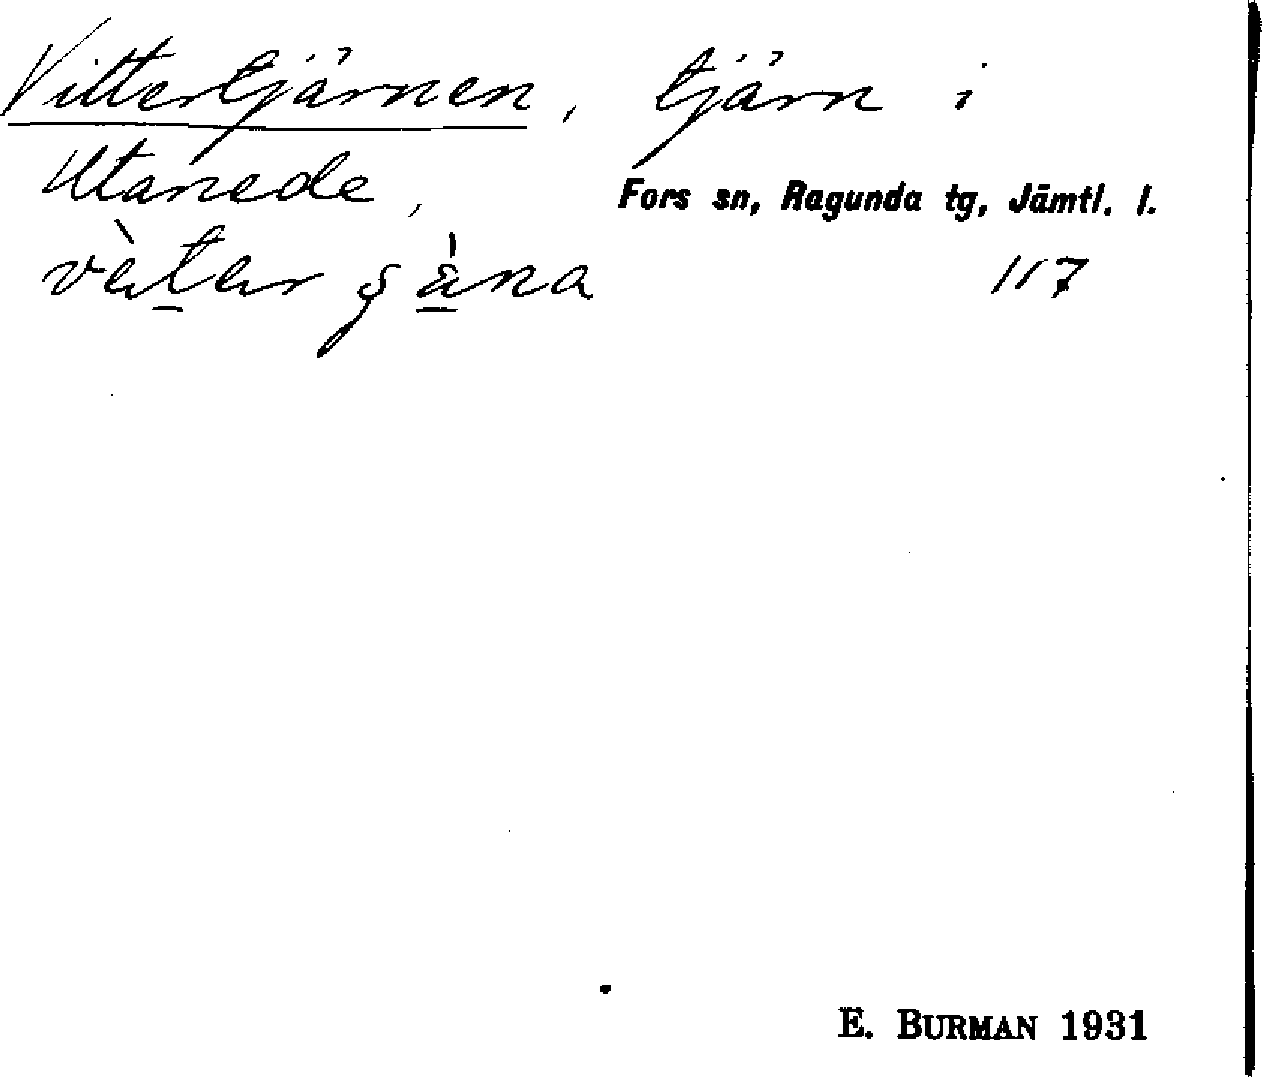 Vittertjärnen, tjärn i
Utanede, Fors sn, Ragunda tg, Jämtl. l.
vàtar şäna 117
E. BURMAN 1931